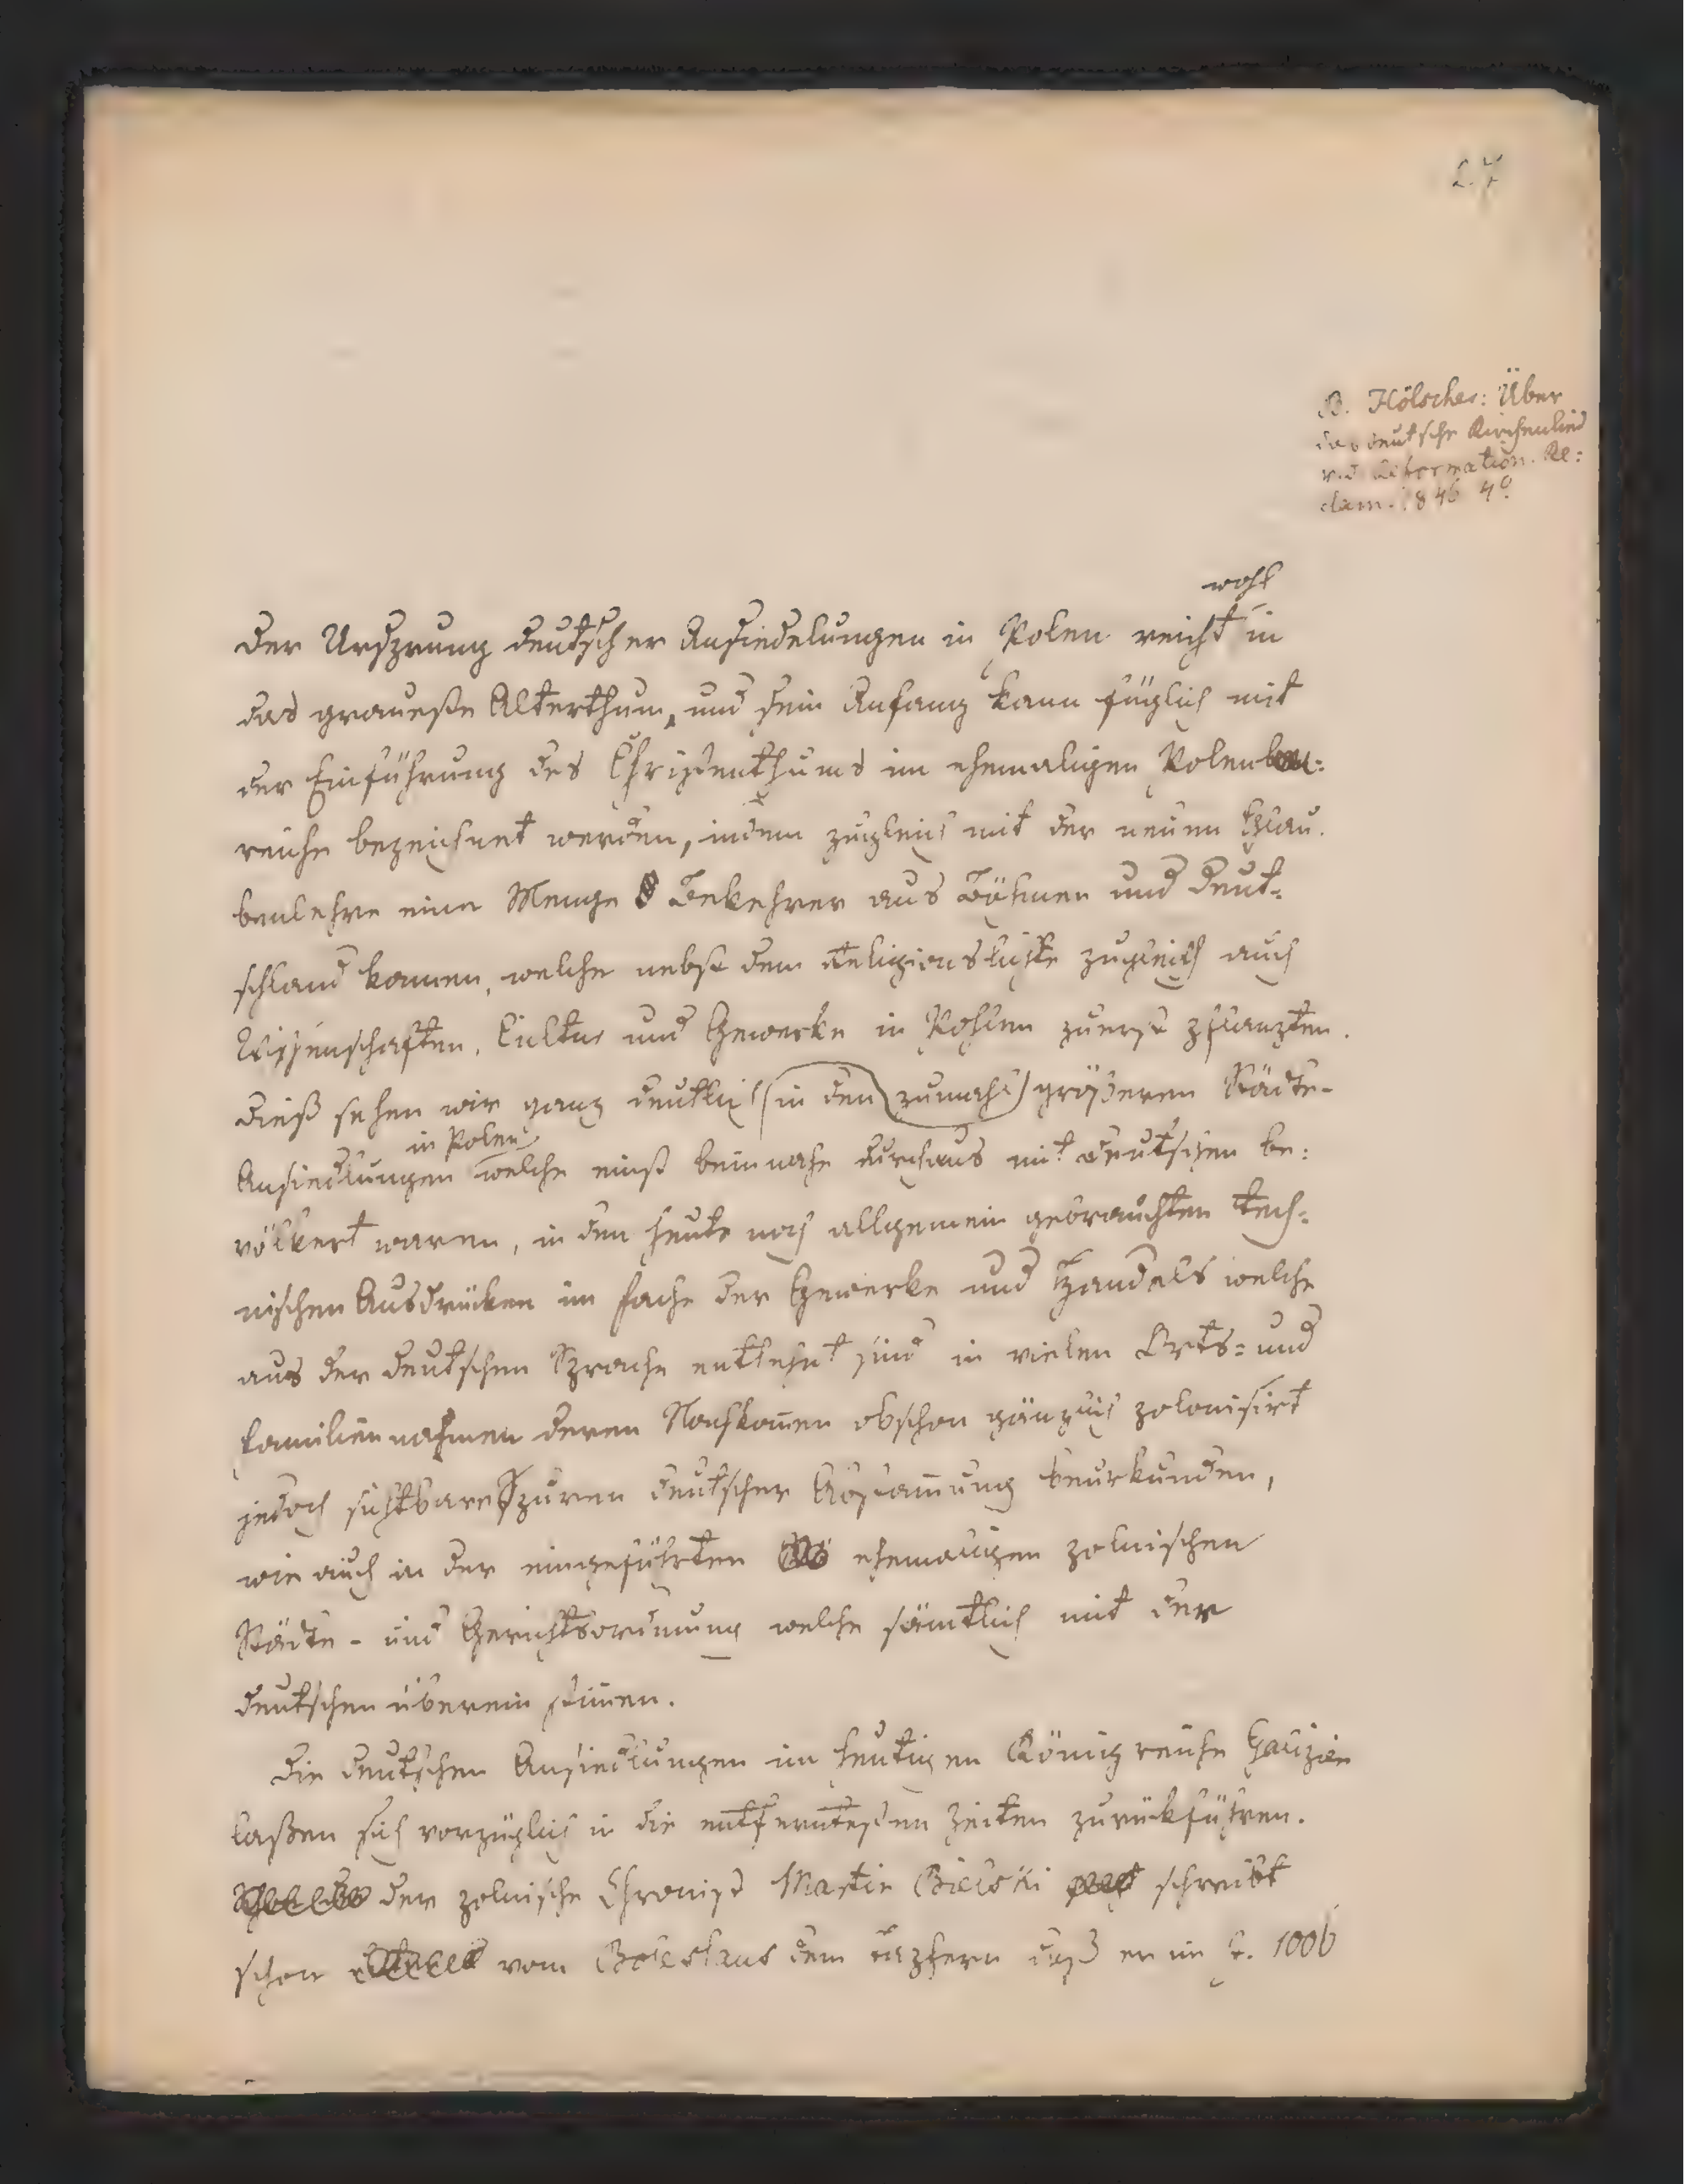 27
B. Hölscher: Über
das deutsche Kirchenlied
v. d. Reformation. Re:
clam. 1846 4º
wohl
Der Ursprung deutscher Ansiedelungen in Polen reicht in
das graueste Alterthum, und sein Anfang kann füglich mit
der Einführung des Christenthums im ehemaligen Polen
reiche bezeichnet werden, indem zugleich mit der neuen Glau.
benslehre eine Menge Bekehrer aus Böhmen und Deut=
schland kamen, welche nebst dem zugleich auch
Wissenschaften, Cultur und Gewerke in Pohlen zuerst pflanzten.
Dieß sehen wir ganz deutlich (in den zumahl) größeren Städte-
in Polen
Ansiedlungen welche einst beinnahe durchaus mit Deutschen be:
völkert waren, in den heute noch allgemein gebrauchten tech=
nischen Ausdrücken im Fache der Gewerke und Handels welche
aus der deutschen Sprache entlehnt sind in vielen Orts= und
Familiennahmen deren Nachkom̄en obschon gänzlich polonisirt
jedoch sichtbare Spuren deutscher Abstam̄ung beurkunden,
wie auch in der eingeführten ehemaligen polnischen
Städte- und Gerichtsordnung welche sämtlich mit der
deutschen überein stim̄en.
Die deutschen Ansiedlungen im heutigen Königreiche Galizien
laßen sich vorzüglich in die entferntesten Zeiten zurückführen.
der polnische Chronist Martin Bielski schreibt
schon vom Boleslaus dem Tapfern daß er im J. 1006